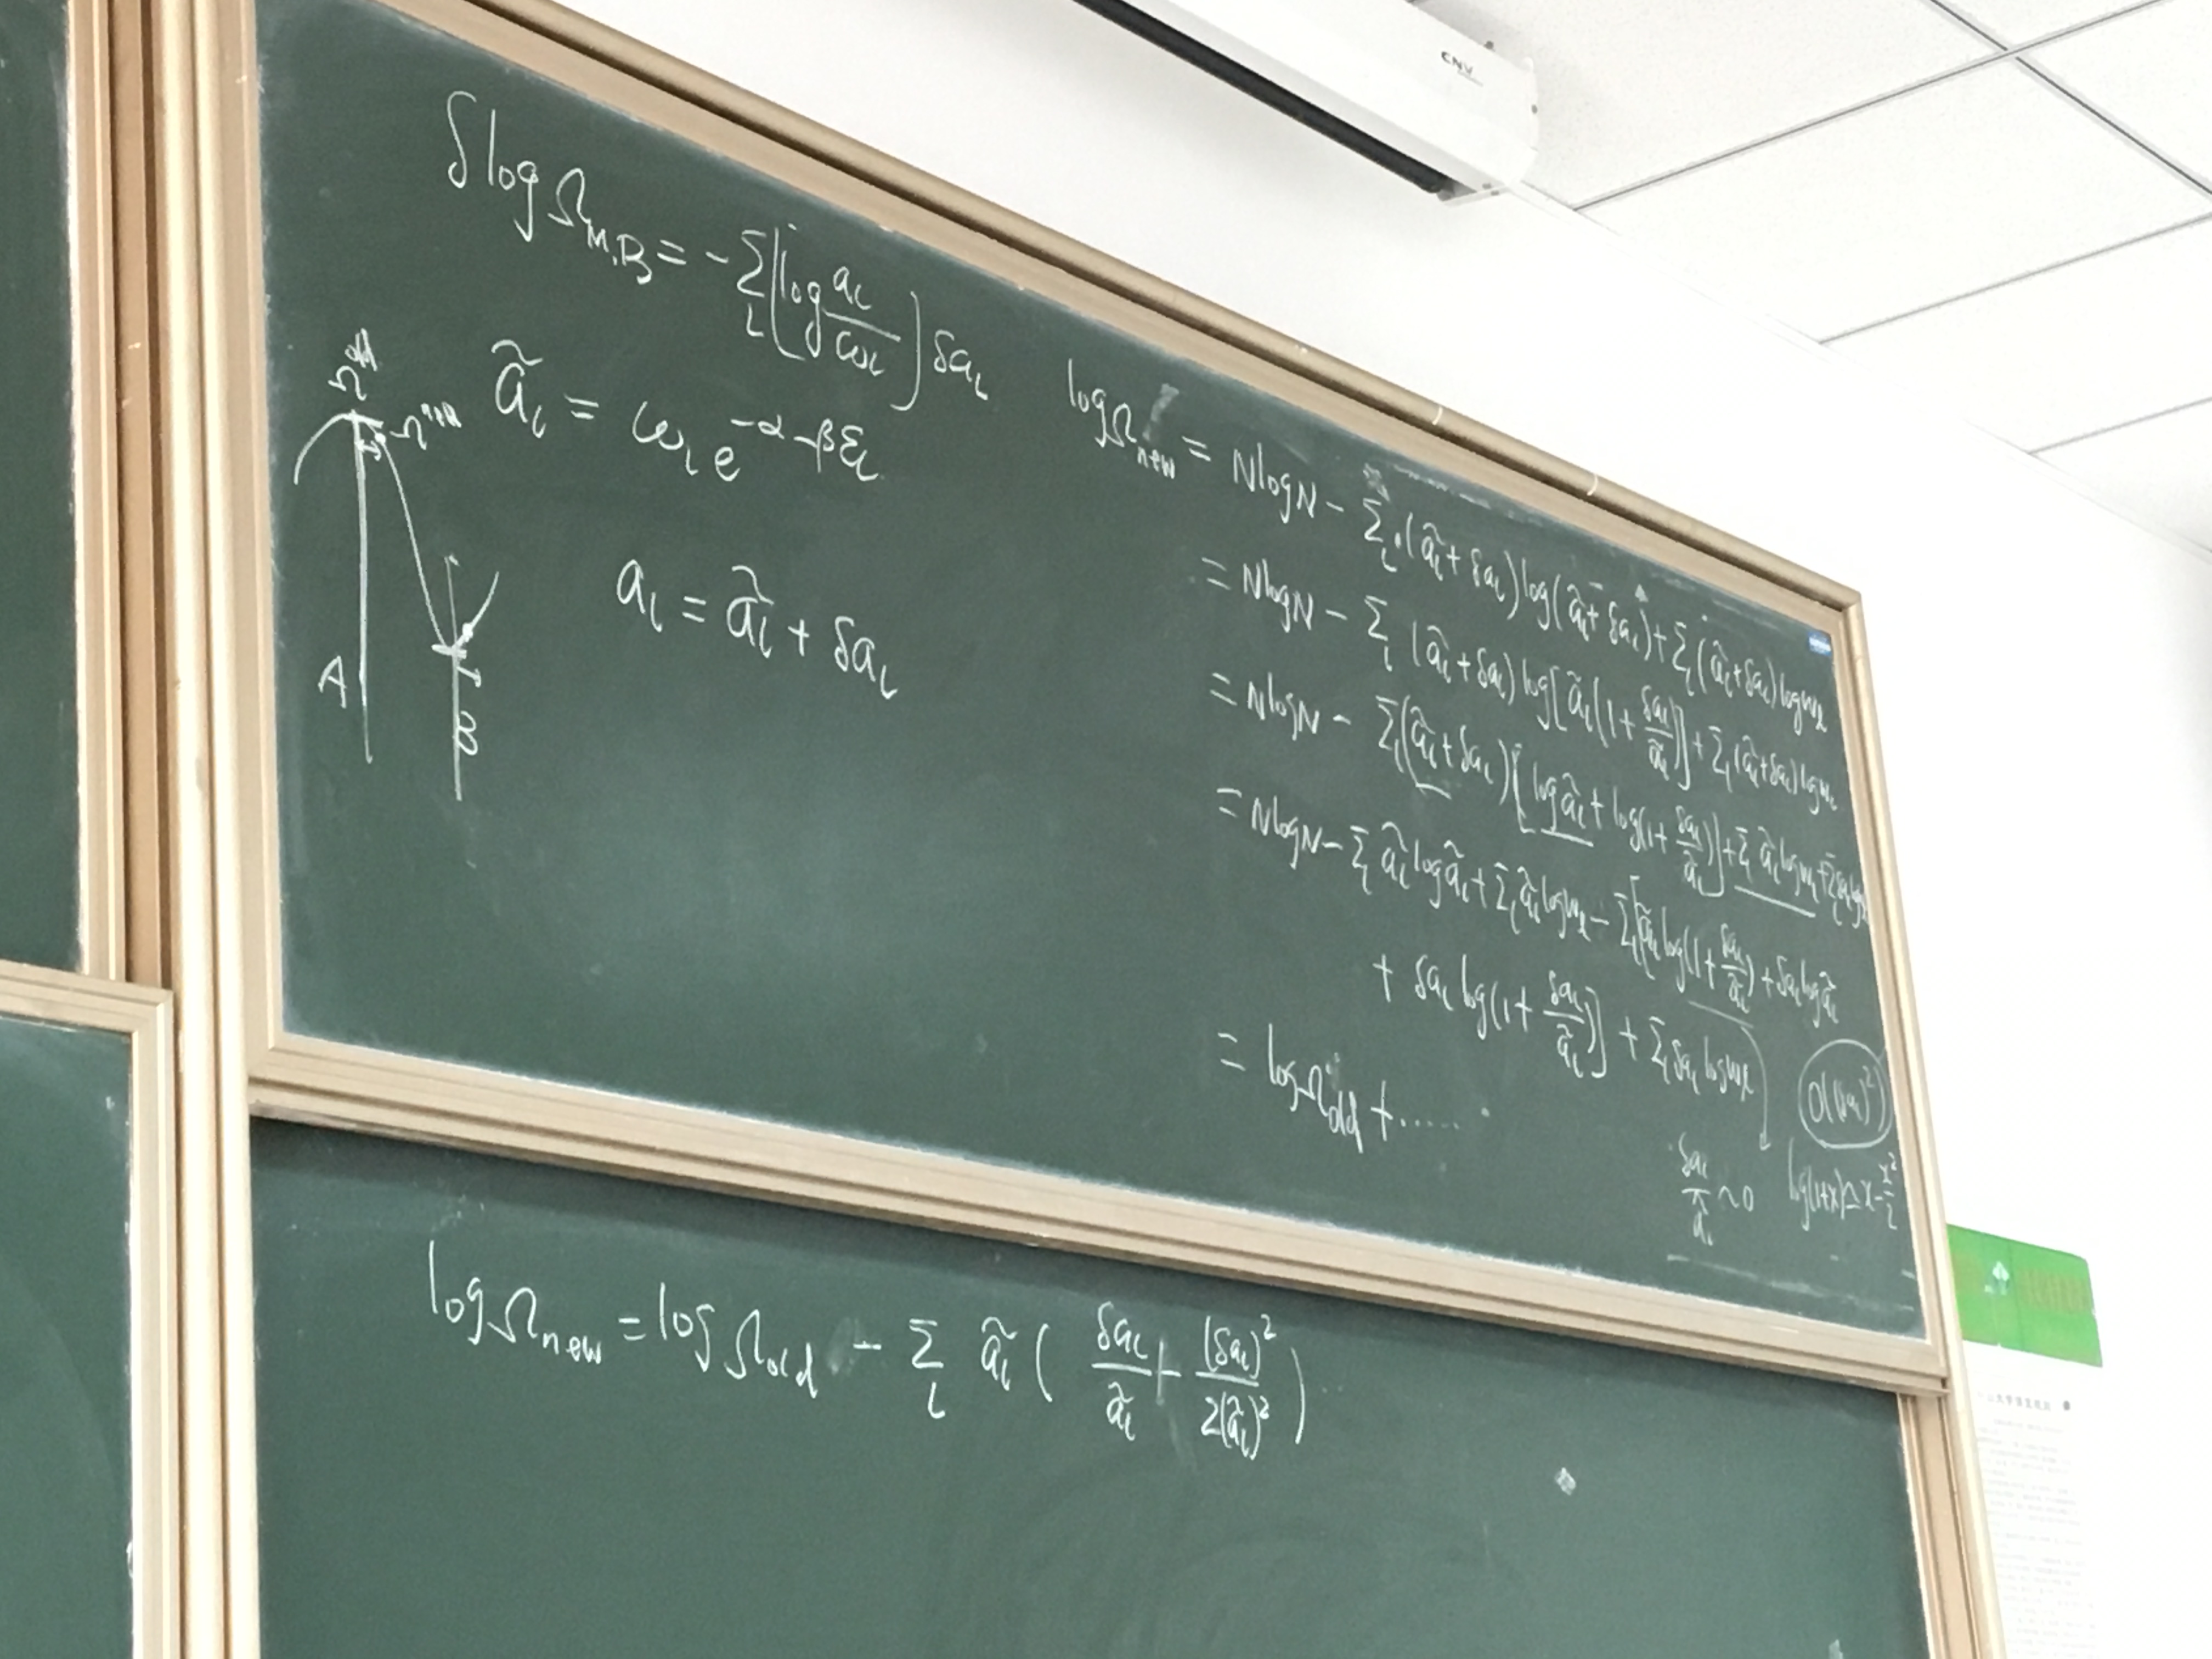 CNV
δ log Ω_{M.B} = - Σ_l (log a_l/ω_l) δa_l
Ω^{old}
Ω^{new}
ã_l = ω_l e^{-α-βε_l}
a_l = ã_l + δa_l
A
B
log Ω_{new} = N log N - Σ_l (ã_l + δa_l) log(ã_l + δa_l) + Σ_l (ã_l + δa_l) log ω_l
= N log N - Σ_l (ã_l + δa_l) log[ã_l(1 + δa_l/ã_l)] + Σ_l (ã_l + δa_l) log ω_l
= N log N - Σ_l (ã_l + δa_l)[log ã_l + log(1 + δa_l/ã_l)] + Σ_l ã_l log ω_l + Σ_l δa_l log ω_l
= N log N - Σ_l ã_l log ã_l + Σ_l ã_l log ω_l - Σ_l [ã_l log(1 + δa_l/ã_l) + δa_l log ã_l
+ δa_l log(1 + δa_l/ã_l)] + Σ_l δa_l log ω_l
= log Ω_{old} + ......
O((δa_l)^2)
δa_l/ã_l ~ 0
log(1+x) ≃ x - x^2/2
log Ω_{new} = log Ω_{old} - Σ_l ã_l ( δa_l/ã_l + (δa_l)^2/2(ã_l)^2 )